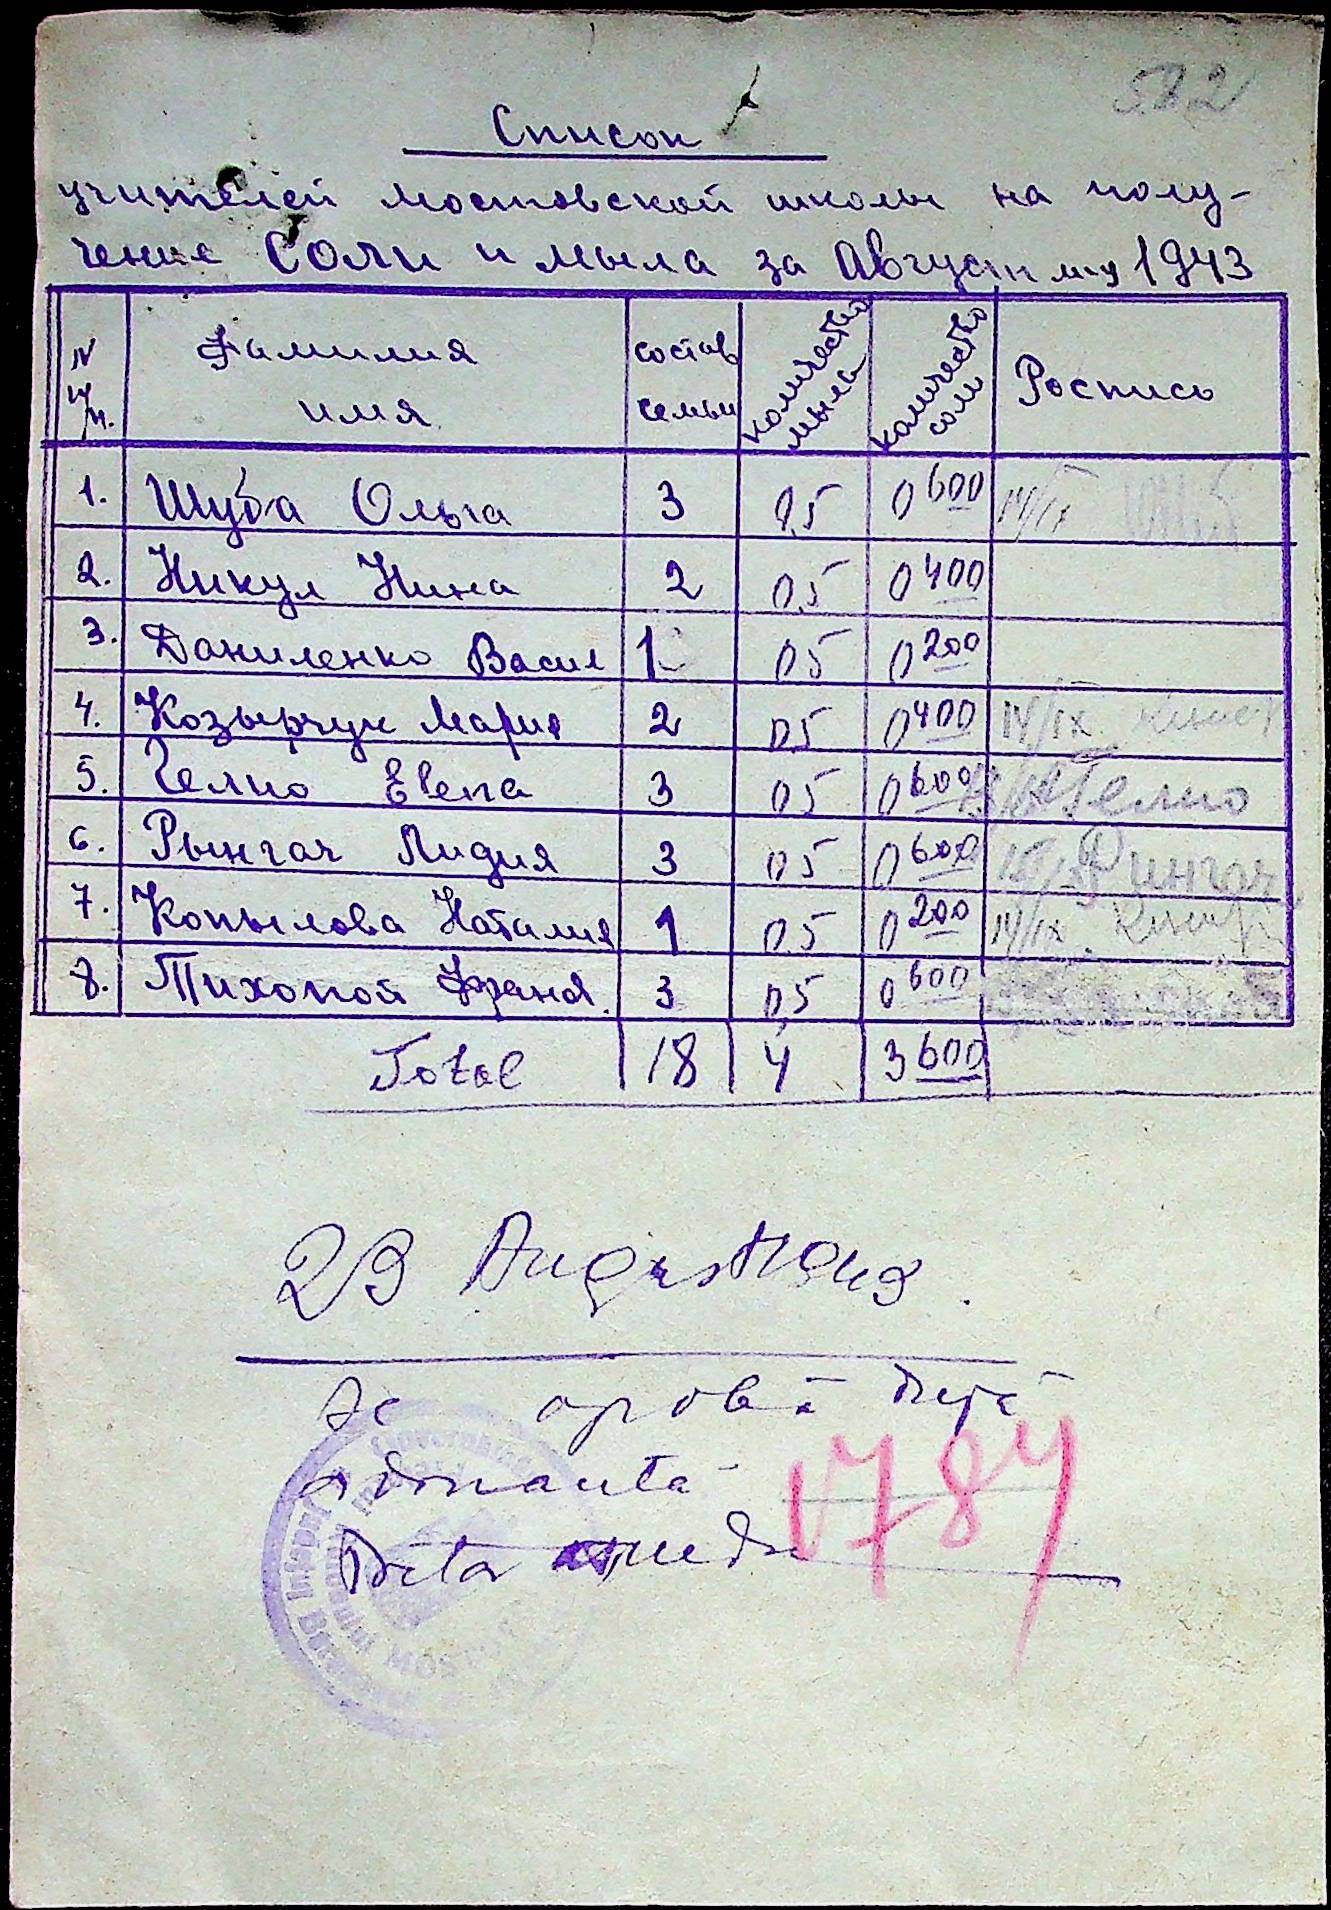 582
Список
учителей мостовской школы на полу-
чение Соли и мыла за Август м-ц 1943
N п/п. Фамилия имя состав семьи количество мыла количество соли Роспись
1. Шуба Ольга 3 0,5 0 600 14/IX
2. Никул Нина 2 0,5 0 400
3. Даниленко Васил 1 0 5 0 200
4. Козырчук Мария 2 0 5 0 400 14/IX
5. Гелио Елена 3 0 5 0 600 Гелио
6. Рынгач Лидия 3 0 5 0 600 Рингач
7. Копылова Наталия 1 0,5 0 200 14/IX
8. Тихопой Франя. 3 0,5 0 600
Total 18 4 3 600
23 August 1943.
Se aprobă după
1784